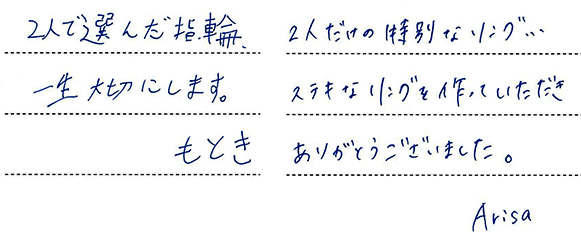 2人で選んだ指輪、
一生大切にします。
もとき
2人だけの特別なリング…
ステキなリングを作っていただき
ありがとうございました。
Arisa